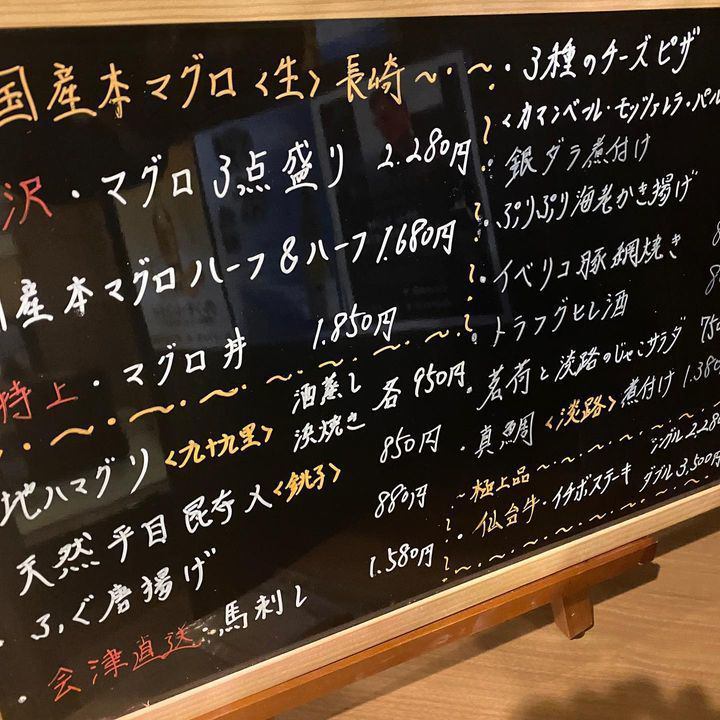 国産本マグロ〈生〉長崎
沢・マグロ3点盛り 2.280円
産本マグロハーフ&ハーフ 1.680円
特上・マグロ丼 1.850円
地ハマグリ〈九十九里〉 酒蒸し 浜焼き 各950円
天然平目昆布〆〈銚子〉 850円
・ふぐ唐揚げ 880円
・会津直送・馬刺し 1.580円
・3種のチーズピザ
〈カマンベール・モッツァレラ・パル
銀ダラ煮付け
・ぷりぷり海老かき揚げ
・イベリコ豚網焼き
・トラフグヒレ酒
・茗荷と淡路のじゃこサラダ 75
・真鯛〈淡路〉煮付け 1.380
極上品
・仙台牛・イチボステーキ シングル2.280 ダブル3.500円